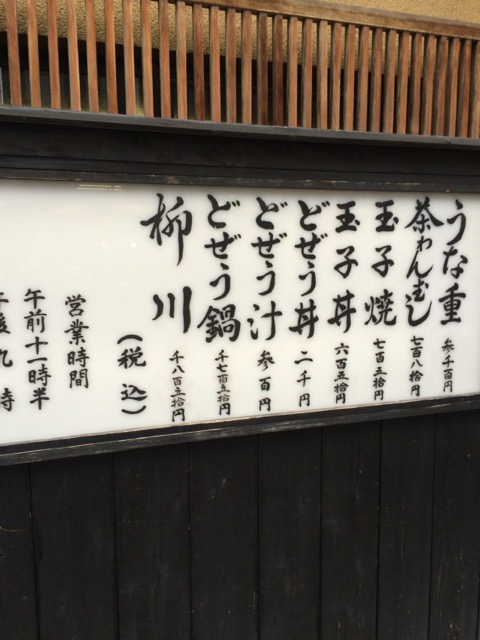 うな重 参千百円
茶わんむし 七百八十円
玉子焼 七百五十円
玉子丼 六百五拾円
どぜう丼 二千円
どぜう汁 参百円
どぜう鍋 千七百五拾円
柳川 千八百五拾円
(税込)
営業時間
午前十一時半
午後九時